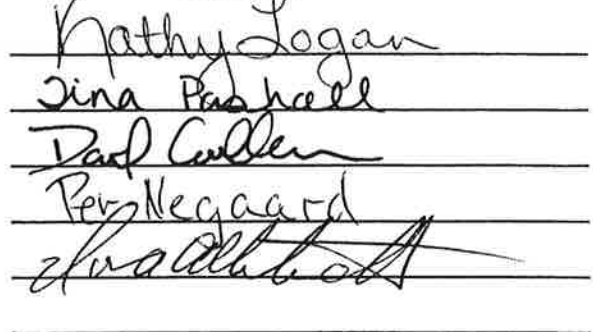 Kathy Logan
Tina Pashall
Cullen
Per Negaard